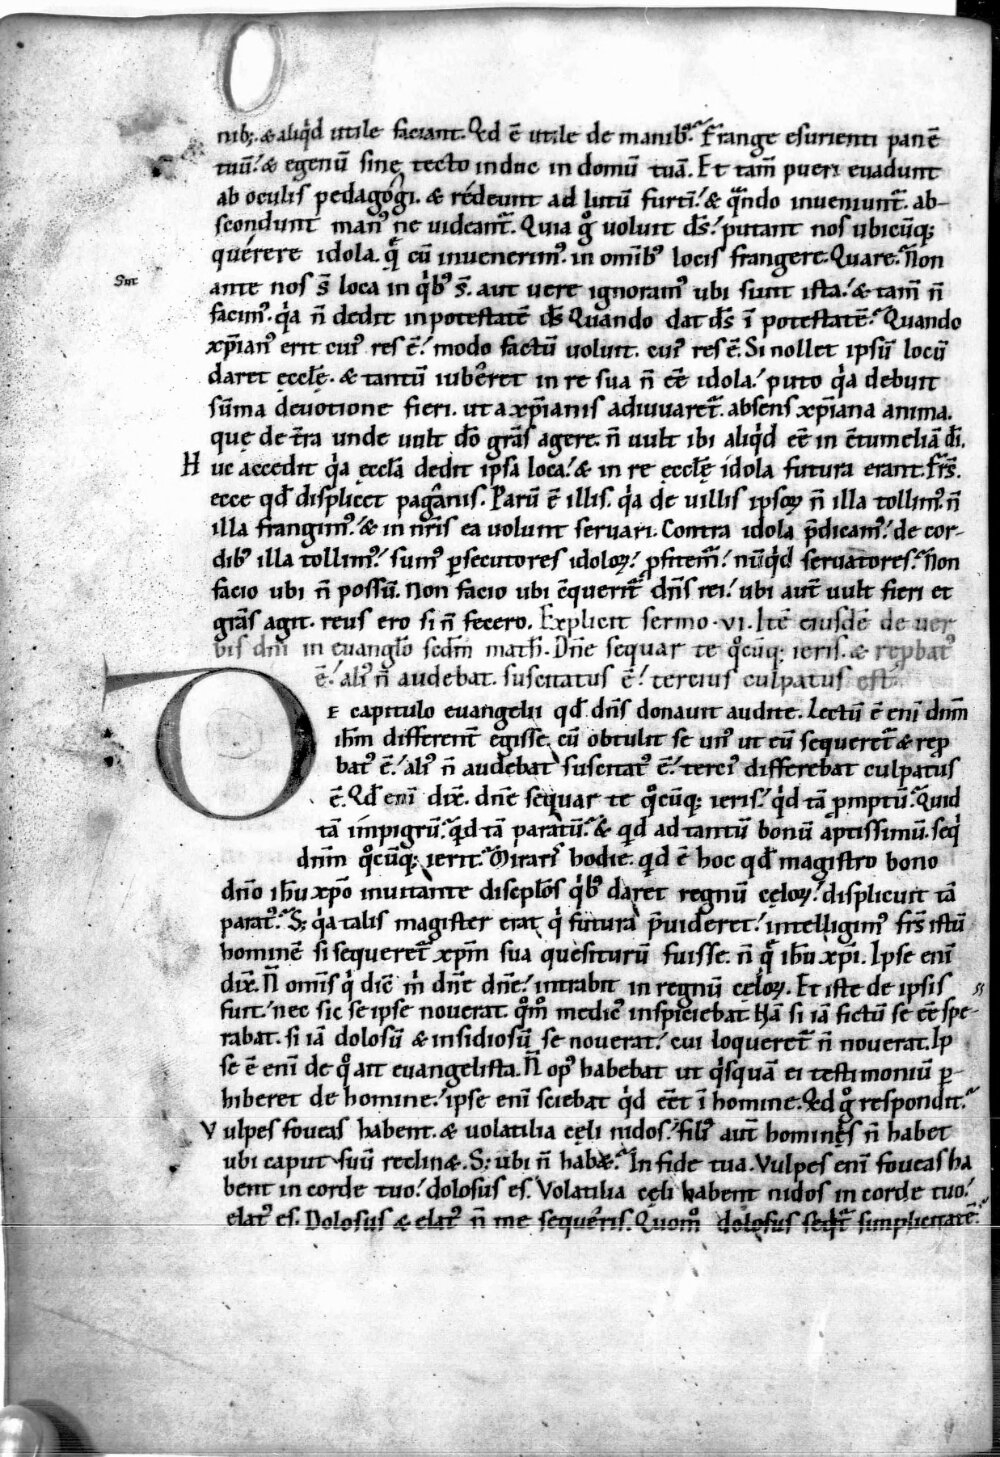 nib; & aliq̍d utile faciant. Qd ē utile de manibꝰ. Frange esurienti panē
tuū. & egenū sine tecto induc in domū tuā. Et tam̄ pueri euadunt
ab oculis pedagogi. & redeunt ad lutū furti. & qn̄do inueniunt̄. ab-
scondunt manꝰ ne uideant̄. Quia gͦ uoluit ds̄. putant nos ubicūq;
querere idola. q̨ cū inuenerimꝰ. in omibꝰ locis frangere. Quare. Non
Sint
ante nos s̄ loca in q̍bꝰ s̄. aut uere ignoramꝰ ubi sunt ista. & tam̄ n̄
facimꝰ. q̍a n̄ dedit in potestatē ds̄. Quando dat ds̄ ī potestatē. Quando
xp̄ianꝰ erit cuiꝰ res ē. modo factū uoluit. cuiꝰ res ē. Si nollet ipsū locū
daret eccłę. & tantū iuberet in re sua n̄ ēē idola. puto q̍a debuit
sūma deuotione fieri. ut a xp̄ianis adiuuaret̄. absens xp̄iana anima.
quę de t̄ra unde uult dō grās agere. n̄ uult ibi aliq̍d ēē in c̄tumeliā di̅.
Huc accedit q̍a eccłā dedit ipsa loca. & in re eccłę idola futura erant. Frs̄.
ecce qđ displicet paganis. Parū ē illis. q̍a de uillis ipsoꝝ n̄ illa tollimꝰ. n̄
illa frangimꝰ. & in nr̄is ea uolunt seruari. Contra idola p̄dicamꝰ. de cor-
dibꝰ illa tollimꝰ. sumꝰ ꝑsecutores idoloꝝ. ꝓfitem̄. nūq̍d seruatores. Non
facio ubi n̄ possū. Non facio ubi c̄querit̄ dn̄s rei. ubi aut̄ uult fieri et
grās agit. reus ero si n̄ fecero. Explicit sermo. VI. Itē eiusdē de uer
bis dn̄i in euanglio scdm̄ math̄. Dn̄e sequar te qͦcūq; ieris. & rep̄batꝰ
ē. aliꝰ n̄ audebat. suscitatus ē. tercius culpatus est.
De capitulo euangelii qđ dn̄s donauit audite. Lectū ē enī dnm̄
ihm̄ different̄ egisse. cū obtulit se unꝰ ut eū sequeret̄ & rep̄
batꝰ ē. aliꝰ n̄ audebat suscitatꝰ ē. terciꝰ differebat culpatus
ē. Qđ enī dix̄. dn̄e sequar te qͦcūq; ieris. q̍d tā ꝓmptū. Quid
tā impigrū. q̍d tā paratū. & qd ad tantū bonū aptissimū. seq̍
dnm̄ qͦcūq; ierit. Miraris hodie. qd ē hoc qđ magistro bono
dn̄o ih̄u xp̄o inuitante discipłos q̍bꝰ daret regnū cęloꝝ. displicuit tā
paratꝰ. S; q̍a talis magister erat q̍ futura p̄uideret. intelligimꝰ frs̄ istū
hominē si sequeret̄ xp̄m sua quesiturū fuisse. n̄ q̨ ih̄u xp̄i. Ipse enī
dix̄. N̄ omīs q̍ dic̄ m̍ dn̄e dn̄e. intrabit in regnū cęloꝝ. Et iste de ipsis
fuit. nec sic se ipse nouerat. qͦmͦ medicꝰ inspiciebat. Nā si iā fictū se ēē spe-
rabat. si iā dolosū & insidiosū se nouerat. cui loqueret̄ n̄ nouerat. Ip
se ē enī de qͦ ait euangelista. N̄ opꝰ habebat ut q̍squā ei testimoniū ꝑ-
hiberet de homine. ipse enī sciebat q̍d eēt ī homine. Qd gͦ respondit.
Vulpes foueas habent. & uolatilia cęli nidos. filiꝰ aut̄ hominis n̄ habet
ubi caput suū reclin&. S; ubi n̄ hab&. In fide tua. Vulpes enī foueas ha
bent in corde tuo. dolosus es. Volatilia cęli habent nidos in corde tuo.
elatꝰ es. Dolosus & elatꝰ n̄ me sequeris. Quomͦ dolosus seqt̄ simplicitatē.